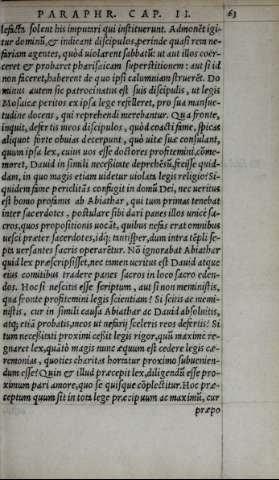 PARAPHR. CAP. II. 63
lesicta solent his imputari qui instituerunt. Admonēt igi-
tur dominū, & indicant discipulos, perinde quasi rem ne-
fariam agentes, quòd uiolarent sabbatū: ut aut illos coër-
ceret & probaret pharisaicam superstitionem: aut si id
non faceret, haberent de quo ipsi calumniam struerēt. Do
minus autem sic patrocinatus est suis discipulis, ut legis
Mosaicæ peritos ex ipsa lege refelleret, pro sua mansue-
tudine docens, qui reprehendi merebantur. Qua fronte,
inquit, defertis meos discipulos, quòd coacti fame, spicas
aliquot forte obuias decerpunt, quò uitæ suæ consulant,
quum ipsa lex, cuius uos esse doctores profitemini, cōme-
moret, Dauid in simili necessitate deprehēsū, fecisse quid-
dam, in quo magis etiam uidetur uiolata legis religio? Si-
quidem fame periclitās confugit in domū Dei, nec ueritus
est homo profanus ab Abiathar, qui tum primas tenebat
inter sacerdotes, postulare sibi dari panes illos unicè sa-
cros, quos propositionis uocāt, quibus nefas erat omnibus
uesci præter sacerdotes, idq; tantisper, dum intra tēpli se-
pta uersantes sacris operarētur. Nō ignorabat Abiathar
quid lex præscripsisset, nec tamen ueritus est Dauid atque
eius comitibus tradere panes sacros in loco sacro eden-
dos. Hoc si nescitis esse scriptum, aut si non meministis,
qua fronte profitemini legis scientiam? Si scitis ac memi-
nistis, cur in simili causa Abiathar ac Dauid absoluitis,
atq; etiā probatis, meos ut nefarij sceleris reos defertis? Si
tum necessitati proximi cessit legis rigor, quū maximè re-
gnaret lex, quātò magis nunc æquum est cedere legis cæ-
remonias, quoties charitas hortatur proximo subuenien-
dum esse? Quin & illud præcepit lex, diligendū esse pro-
ximum pari amore, quo se quisque cōplectitur. Hoc præ-
ceptum quum sit in tota lege præcipuum ac maximū, cur
præpo